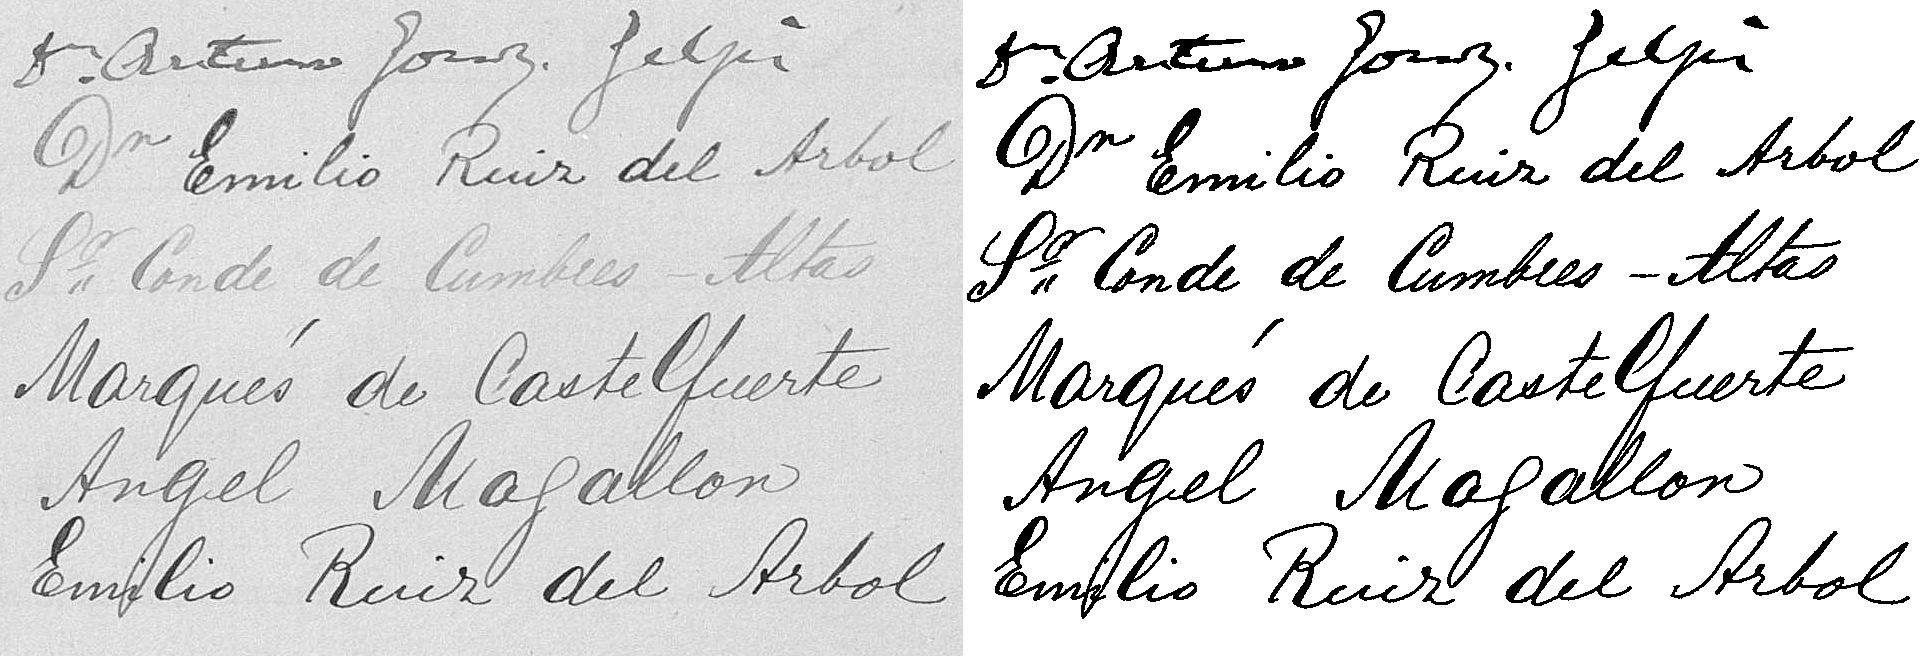 Dn. Arturo Gonz. Gelpi
Dn Emilio Ruiz del Arbol
Sr. Conde de Cumbres - Altas
Marqués de Castelfuerte
Angel Magallon
Emilio Ruiz del Arbol
Dn. Arturo Gonz. Gelpi
Dn Emilio Ruiz del Arbol
Sr. Conde de Cumbres - Altas
Marqués de Castelfuerte
Angel Magallon
Emilio Ruiz del Arbol